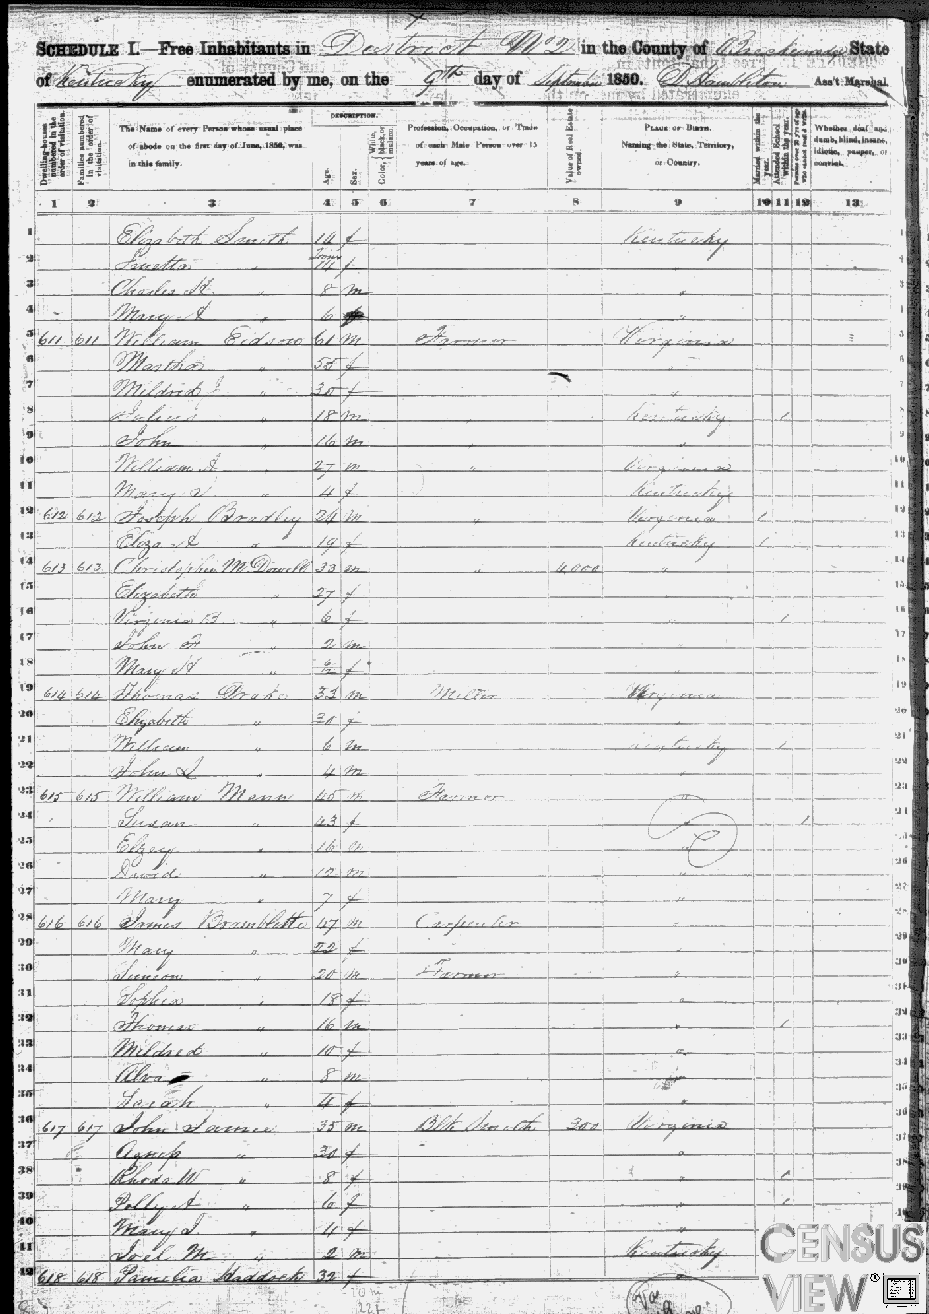 SCHEDULE I.—Free Inhabitants in District No 2 in the County of State
of Kentucky enumerated by me, on the 9th day of September 1850. Ass't Marshal.
Dwelling-houses numbered in the order of visitation.
Families numbered in the order of visitation.
The Name of every Person whose usual place of abode on the first day of June, 1850, was in this family.
DESCRIPTION.
Age.
Sex.
Color, White, black, or mulatto.
Profession, Occupation, or Trade of each Male Person over 15 years of age.
Value of Real Estate owned.
PLACE OF BIRTH. Naming the State, Territory, or Country.
Married within the year.
Attended School within the year.
Persons over 20 y'rs of age who cannot read & write.
Whether deaf and dumb, blind, insane, idiotic, pauper, or convict.
1 2 3 4 5 6 7 8 9 10 11 12 13
1 Elizabeth Smith 14 f Kentucky
2 " f "
3 Charles H " 8 m "
4 Mary A " 6 "
5 611 611 William Eidson 61 m Farmer Virginia
6 Martha " 55 f "
7 Mildred J " 30 f "
8 Julius " 18 m " Kentucky 1
9 John " 16 m " "
10 William A " 27 m " Virginia
11 Mary " 4 f Kentucky
12 612 612 Joseph Bradley 24 m " Virginia 1
13 Eliza A " 19 f Kentucky 1
14 613 613 Christopher McDowell 33 m " 4,000 "
15 Elizabeth " 27 f "
16 Virginia B " 6 f " 1
17 John " 2 m "
18 Mary H " f "
19 614 614 Thomas Drake 33 m Miller Virginia
20 Elizabeth " f "
21 William " 6 m Kentucky 1
22 John " 4 m "
23 615 615 William Mann 45 m Farmer "
24 Susan " 43 f " 1
25 Elzey " 16 m "
26 David " 12 m "
27 Mary " 7 f "
28 616 616 James Bramblette 47 m Carpenter "
29 Mary " f "
30 Simeon " 20 m Farmer "
31 Sophia " 18 f "
32 Thomas " 16 m " 1
33 Mildred " 10 f "
34 Alva " 8 m "
35 " 4 f "
36 617 617 John 35 m Blk Smith 300 Virginia
37 Agness " 30 f "
38 Rhoda W " 8 f " 1
39 Polly A " 6 f " 1
40 Mary " 4 f "
41 Joel M " 2 m Kentucky
42 618 618 Pamelia Haddock 32 f
CENSUS
VIEW®